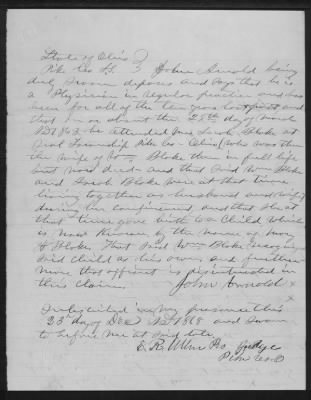 State of Ohio }
Pike Co SS. } John Arnold being
duly sworn deposes and says that he is
a Physician in regular practice and has
been for all of the ten years last past and
that on or about the 28th day of march
AD 1863 he attended Mrs Sarah Bloke at
Township Pike Co - Ohio (who was then
the wife of Wm Bloke then in full life
but now dead - and that said Wm Bloke
and Sarah Bloke were at that time
living together as husband and wife)
during her confinement and that she at
that time gave birth to a child which
is now known by the name of
Bloke. That said Wm Bloke recognized
said child as his own and further
more that affiant is disinterested in
this claim. John Arnold
Subscribed in my presence this
23 day of Dec AD 1868 and sworn
to before me at said date
E. R. Pro Judge
Pike Co O